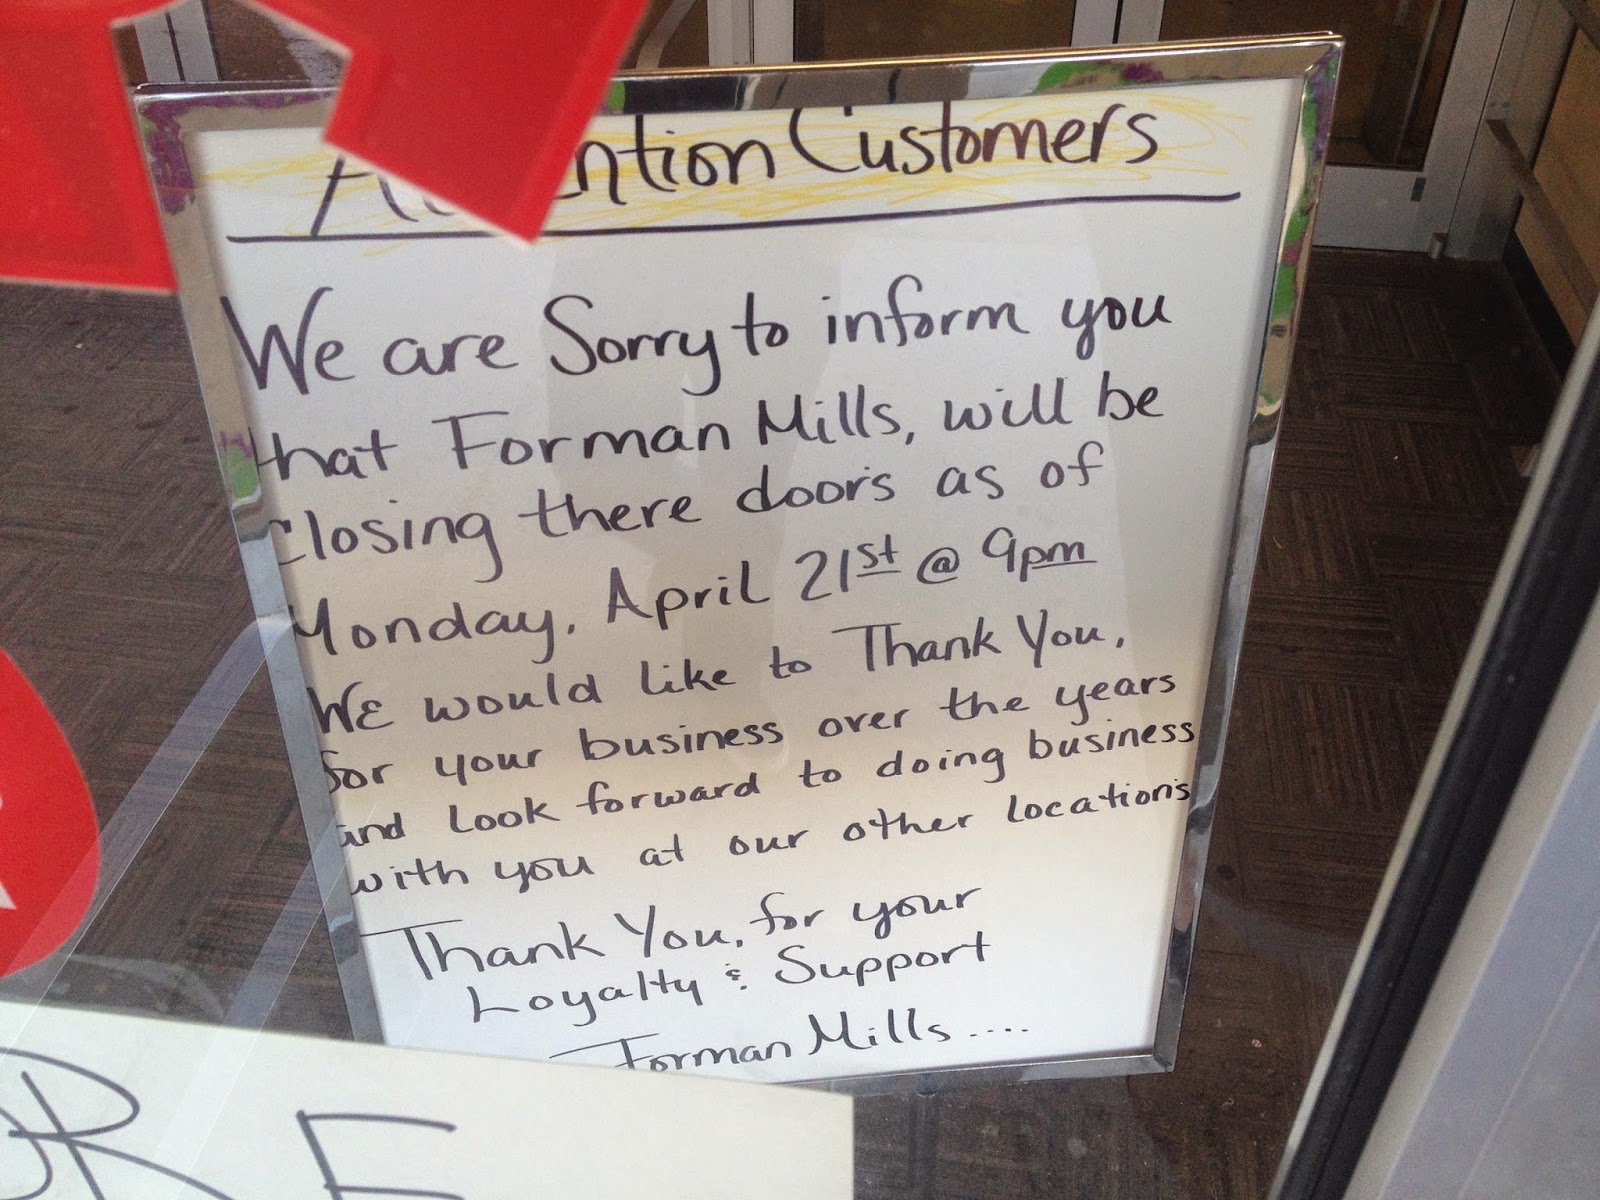 Attention Customers
We are Sorry to inform you
that Forman Mills, will be
closing there doors as of
Monday, April 21st @ 9pm
We would like to Thank You,
for your business over the years
and Look forward to doing business
with you at our other locations
Thank You, for your
Loyalty & Support
Forman Mills....
ORE